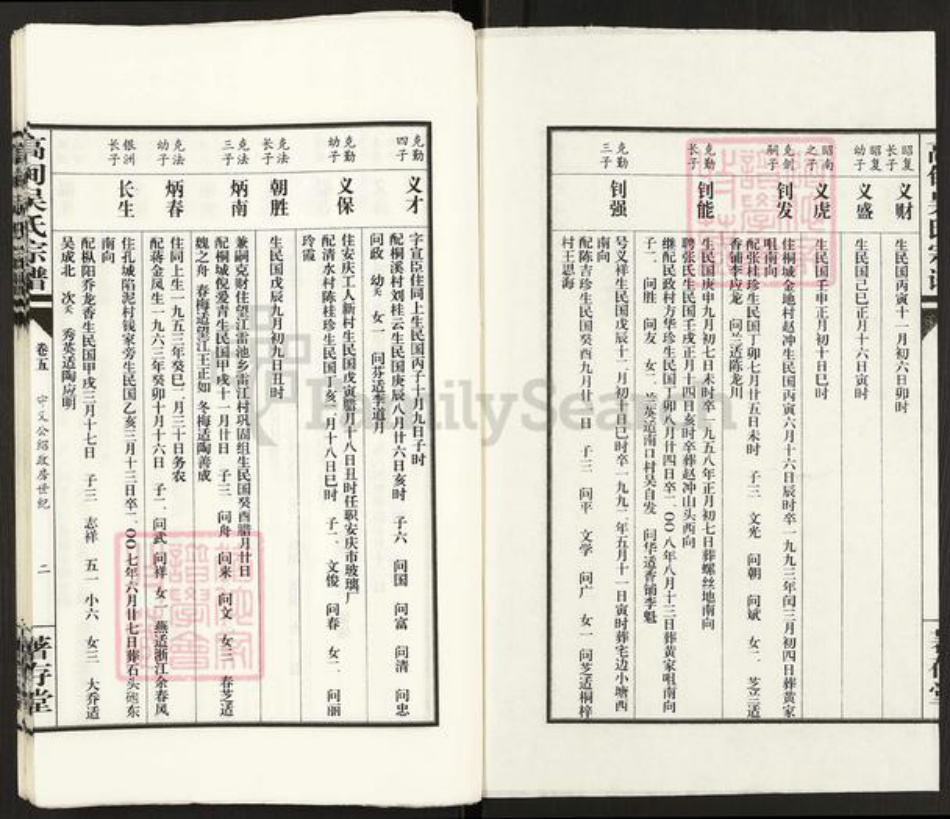 昭复长子
义财
生民国丙寅十一月初六日卯时
昭复幼子
义盛
生民国己巳正月十六日寅时
昭南之子
义虎
生民国壬申正月初十日巳时
克剑嗣子
钊发
住桐城金地村赵冲生民国丙寅六月十六日辰时卒一九九三年闰三月初四日葬黄家咀南向
配张桂珍生民国丁卯七月廿五日未时 子三 文光 问朝 问斌 女二 芝兰适香铺李应龙 问兰适陈龙川
克勤长子
钊能
生民国庚申九月初七日未时卒一九五八年正月初七日葬螺丝地南向
聘张氏生民国壬戌正月十四日亥时卒葬赵冲山头西向
继配民政村方华珍生民国丁卯八月廿四日卒二〇〇八年八月十三日葬黄家咀南向 子二 问胜 问友 女二 兰英适南口村吴自发 问华适香铺李魁
克勤三子
钊强
号义祥生民国戊辰十二月初十日巳时卒一九九二年五月十一日寅时葬宅边小塘西南向
配陈吉珍生民国癸酉九月廿二日 子三 问平 文学 问广 女一 问芝适桐梓村王思海
高甸吴氏宗谱
卷五
中义公绍政房世纪
二
著存堂
克勤四子
义才
字宣臣住同上生民国丙子十月九日子时
配桐溪村刘桂云生民国庚辰八月廿六日亥时 子六 问国 问富 问清 问忠 问政 幼夭 女一 问芬适李道月
克勤幼子
义保
住安庆工人新村生民国戊寅腊月十八日丑时任职安庆市玻璃厂
配清水村陈桂珍生民国丁亥二月十八日巳时 子二 文俊 问春 女二 问丽 玲霞
克法长子
朝胜
生民国戊辰九月初九日丑时
克法三子
炳南
兼嗣克财住望江雷池乡雷江村巩固组生民国癸酉腊月廿日
配桐城倪爱青生民国甲戌十一月廿日 子三 问舟 问来 问文 女三 春芝适魏之舟 春梅适望江王正如 冬梅适陶善成
克法幼子
炳春
住同上生一九五三年癸巳二月三十日务农
配蒋金凤生一九六三年癸卯十月十六日 子二 问武 问祥 女一 燕适浙江余春风
银洲长子
长生
住孔城陷泥村钱家旁生民国乙亥三月十三日卒二〇〇七年六月廿七日葬石头砲东南向
配枞阳乔龙香生民国甲戌三月十七日 子三 志祥 五一 小六 女三 大乔适吴成北 次夭 秀英适陶应明
FamilySearch